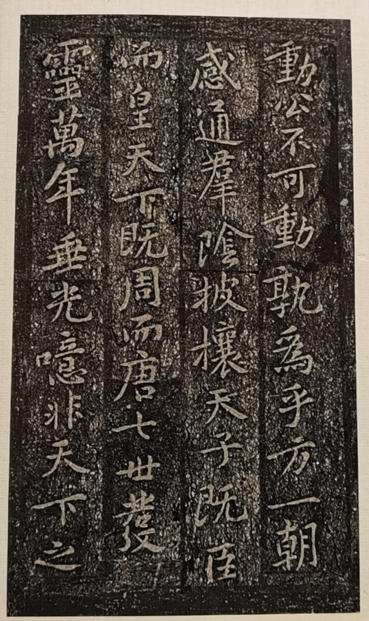 動公不可動孰爲乎方一朝
感通羣陰披攘天子既臣
而皇天下既周而唐七世發
靈萬年垂光噫非天下之